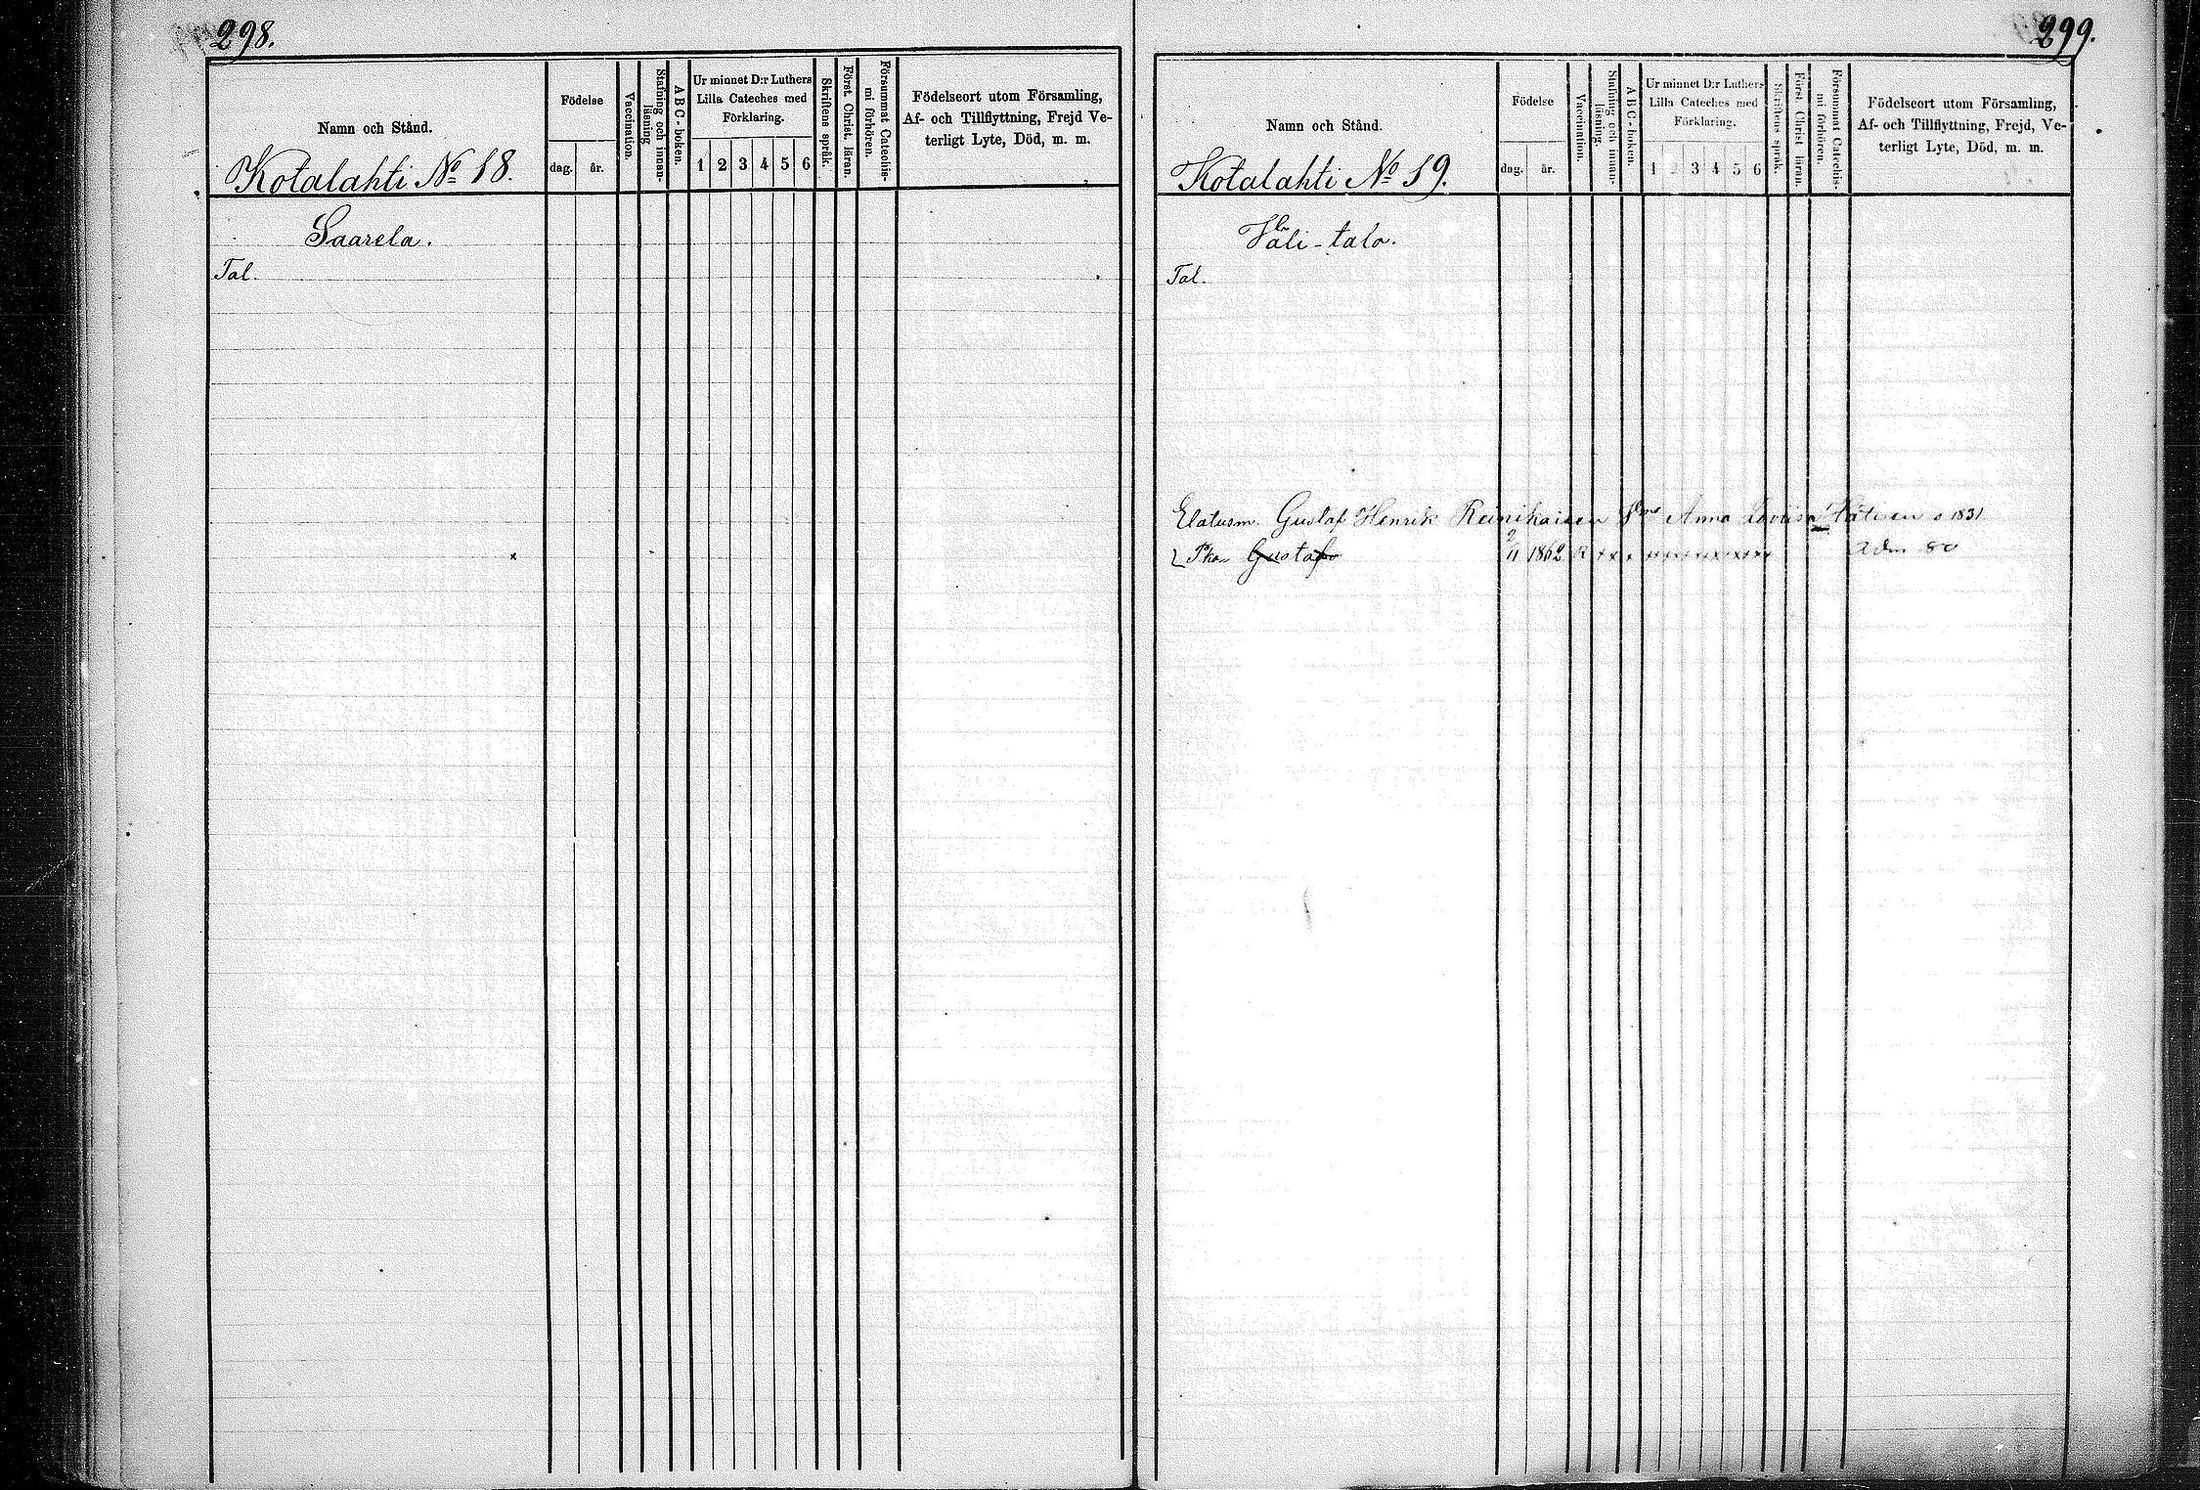 298.
Namn och Stånd.
Kotalahti No 18.
Födelse
dag.
år.
Vaccination.
Stafning och innan-
läsning
A B C-boken.
Ur minnet D:r Luthers
Lilla Cateches med
Förklaring.
1 2 3 4 5 6
Skriftens språk.
Först. Christ. läran.
Försummat Catechis-
mi förhören.
Födelseort utom Församling,
Af- och Tillflyttning, Frejd Ve-
terligt Lyte, Död, m. m.
Saarela.
Tal.
x
299.
Namn och Stånd.
Kotalahti No 19.
Födelse
dag.
år.
Vaccination.
Stafning och innan-
läsning
A B C-boken.
Ur minnet D:r Luthers
Lilla Cateches med
Förklaring.
1 2 3 4 5 6
Skriftens språk.
Först. Christ. läran.
Försummat Catechis-
mi förhören.
Födelseort utom Församling,
Af- och Tillflyttning, Frejd, Ve-
terligt Lyte, Död, m. m.
Väli-talo.
Tal.
Elatusm. Gustaf Henrik Reinikainen Anna Lovisa 1831
Gustaf 2/11 1862 Adm 80